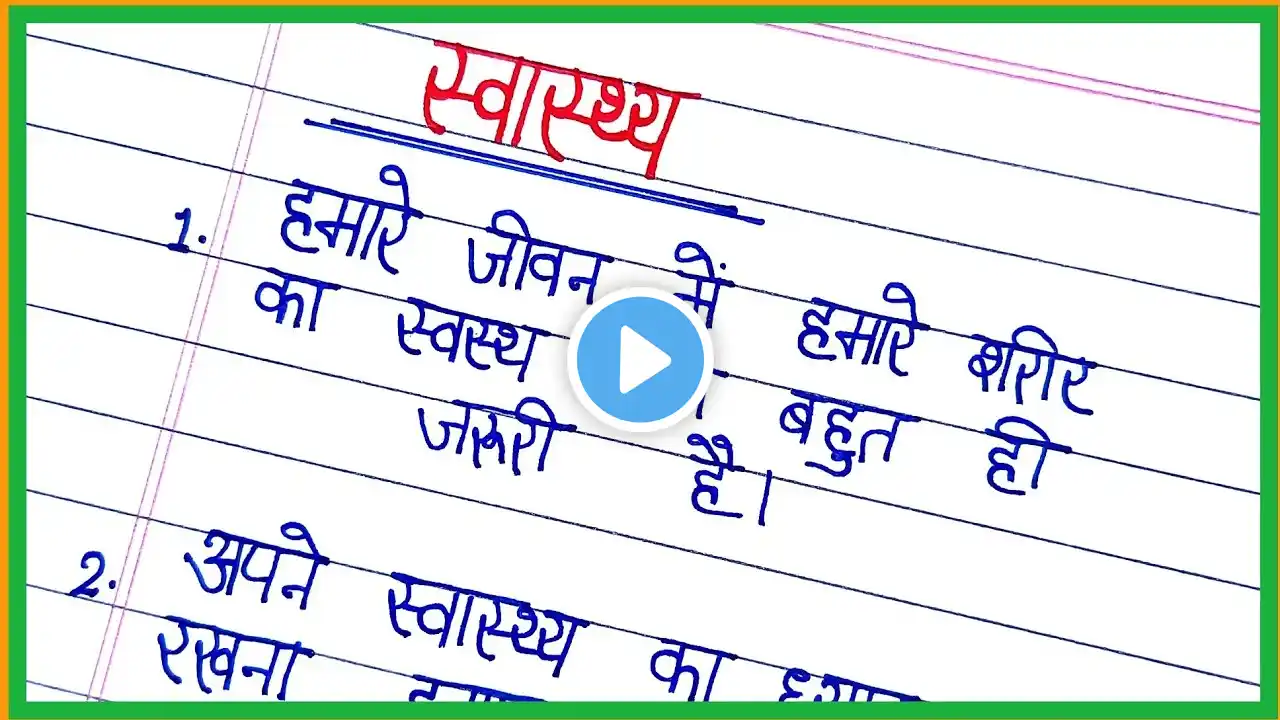 स्वास्थ्य
1. हमारे जीवन में हमारे शरीर
का स्वस्थ बहुत ही
जरूरी है।
2. अपने स्वास्थ्य का
रखना